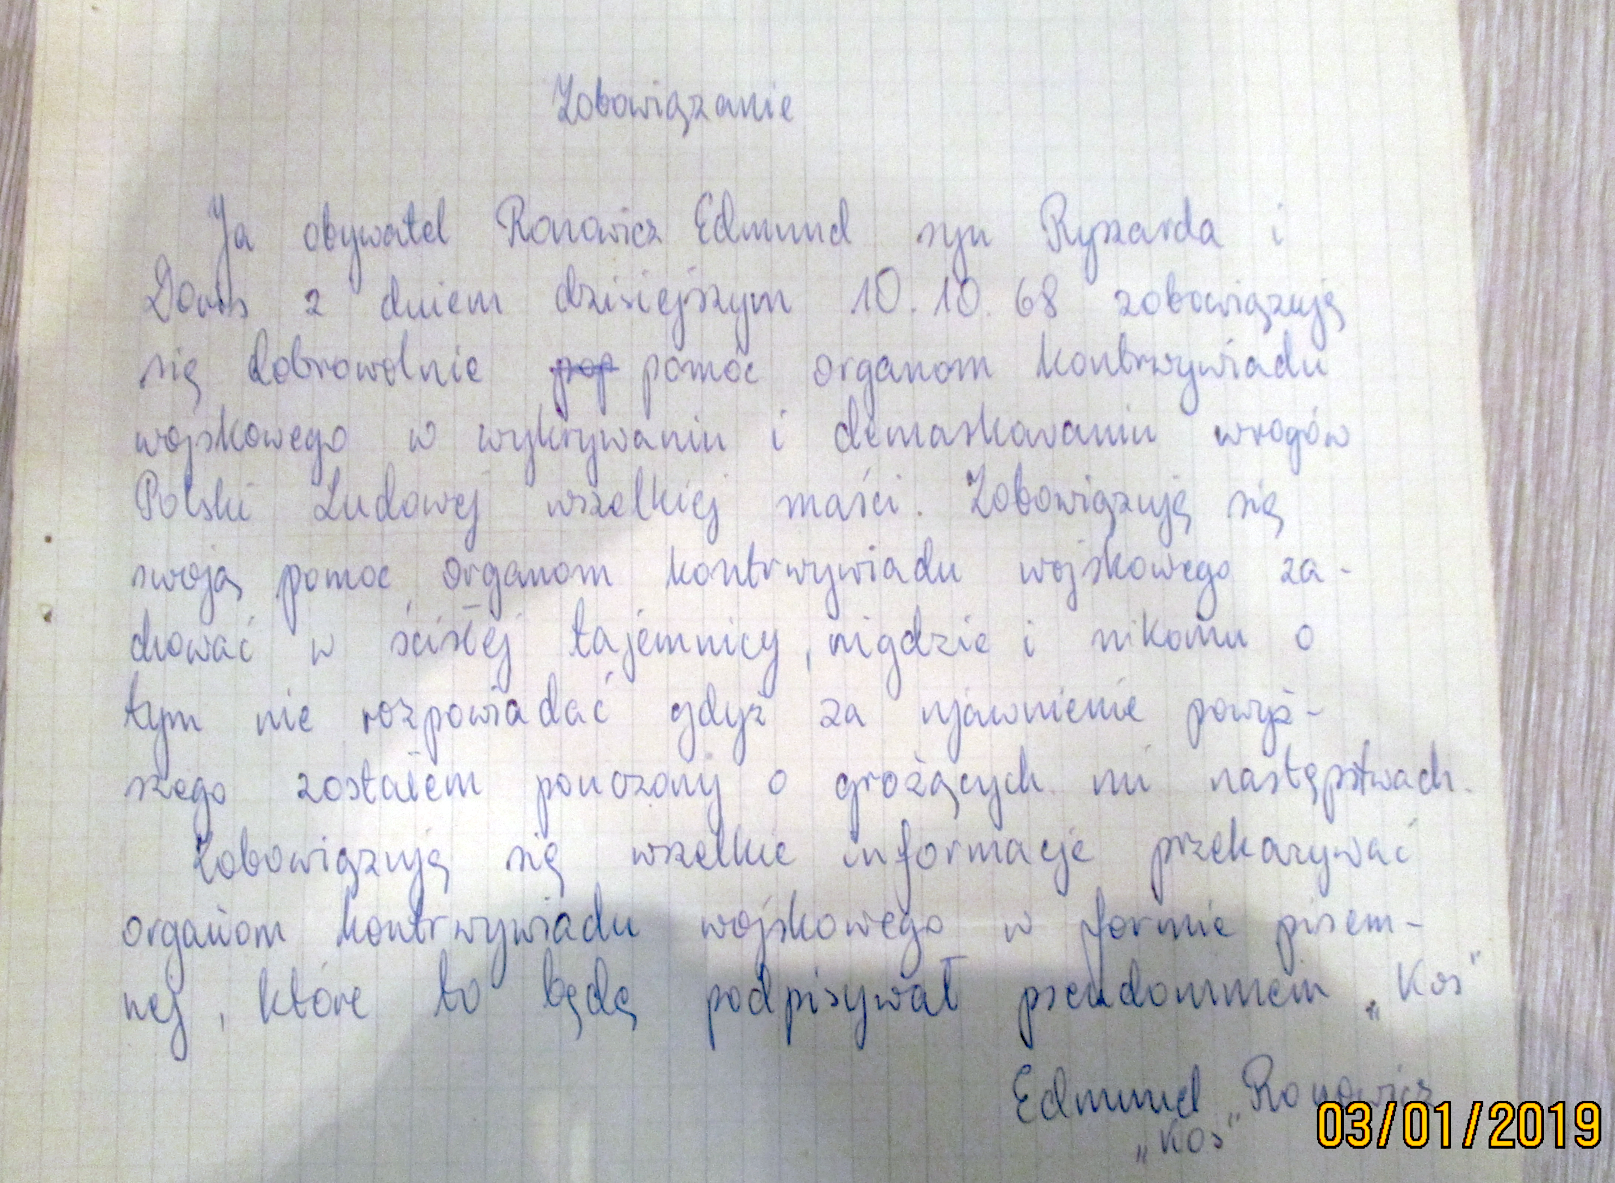 Zobowiązanie
Ja obywatel Ronowicz Edmund syn Ryszarda i
Doris z dniem dzisiejszym 10.10.68 zobowiązuję
się dobrowolnie pop pomóc organom kontrwywiadu
wojskowego w wykrywaniu i demaskowaniu wrogów
Polski Ludowej wszelkiej maści. Zobowiązuję się
swoją pomoc organom kontrwywiadu wojskowego za-
chować w ścisłej tajemnicy, nigdzie i nikomu o
tym nie rozpowiadać gdyż za ujawnienie powyż-
szego zostałem pouczony o grożących mi następstwach.
Zobowiązuję się wszelkie informacje przekazywać
organom kontrwywiadu wojskowego w formie pisem-
nej, które to będę podpisywał pseudonimem „Kos"
Edmund Ronowicz
„Kos"
03/01/2019